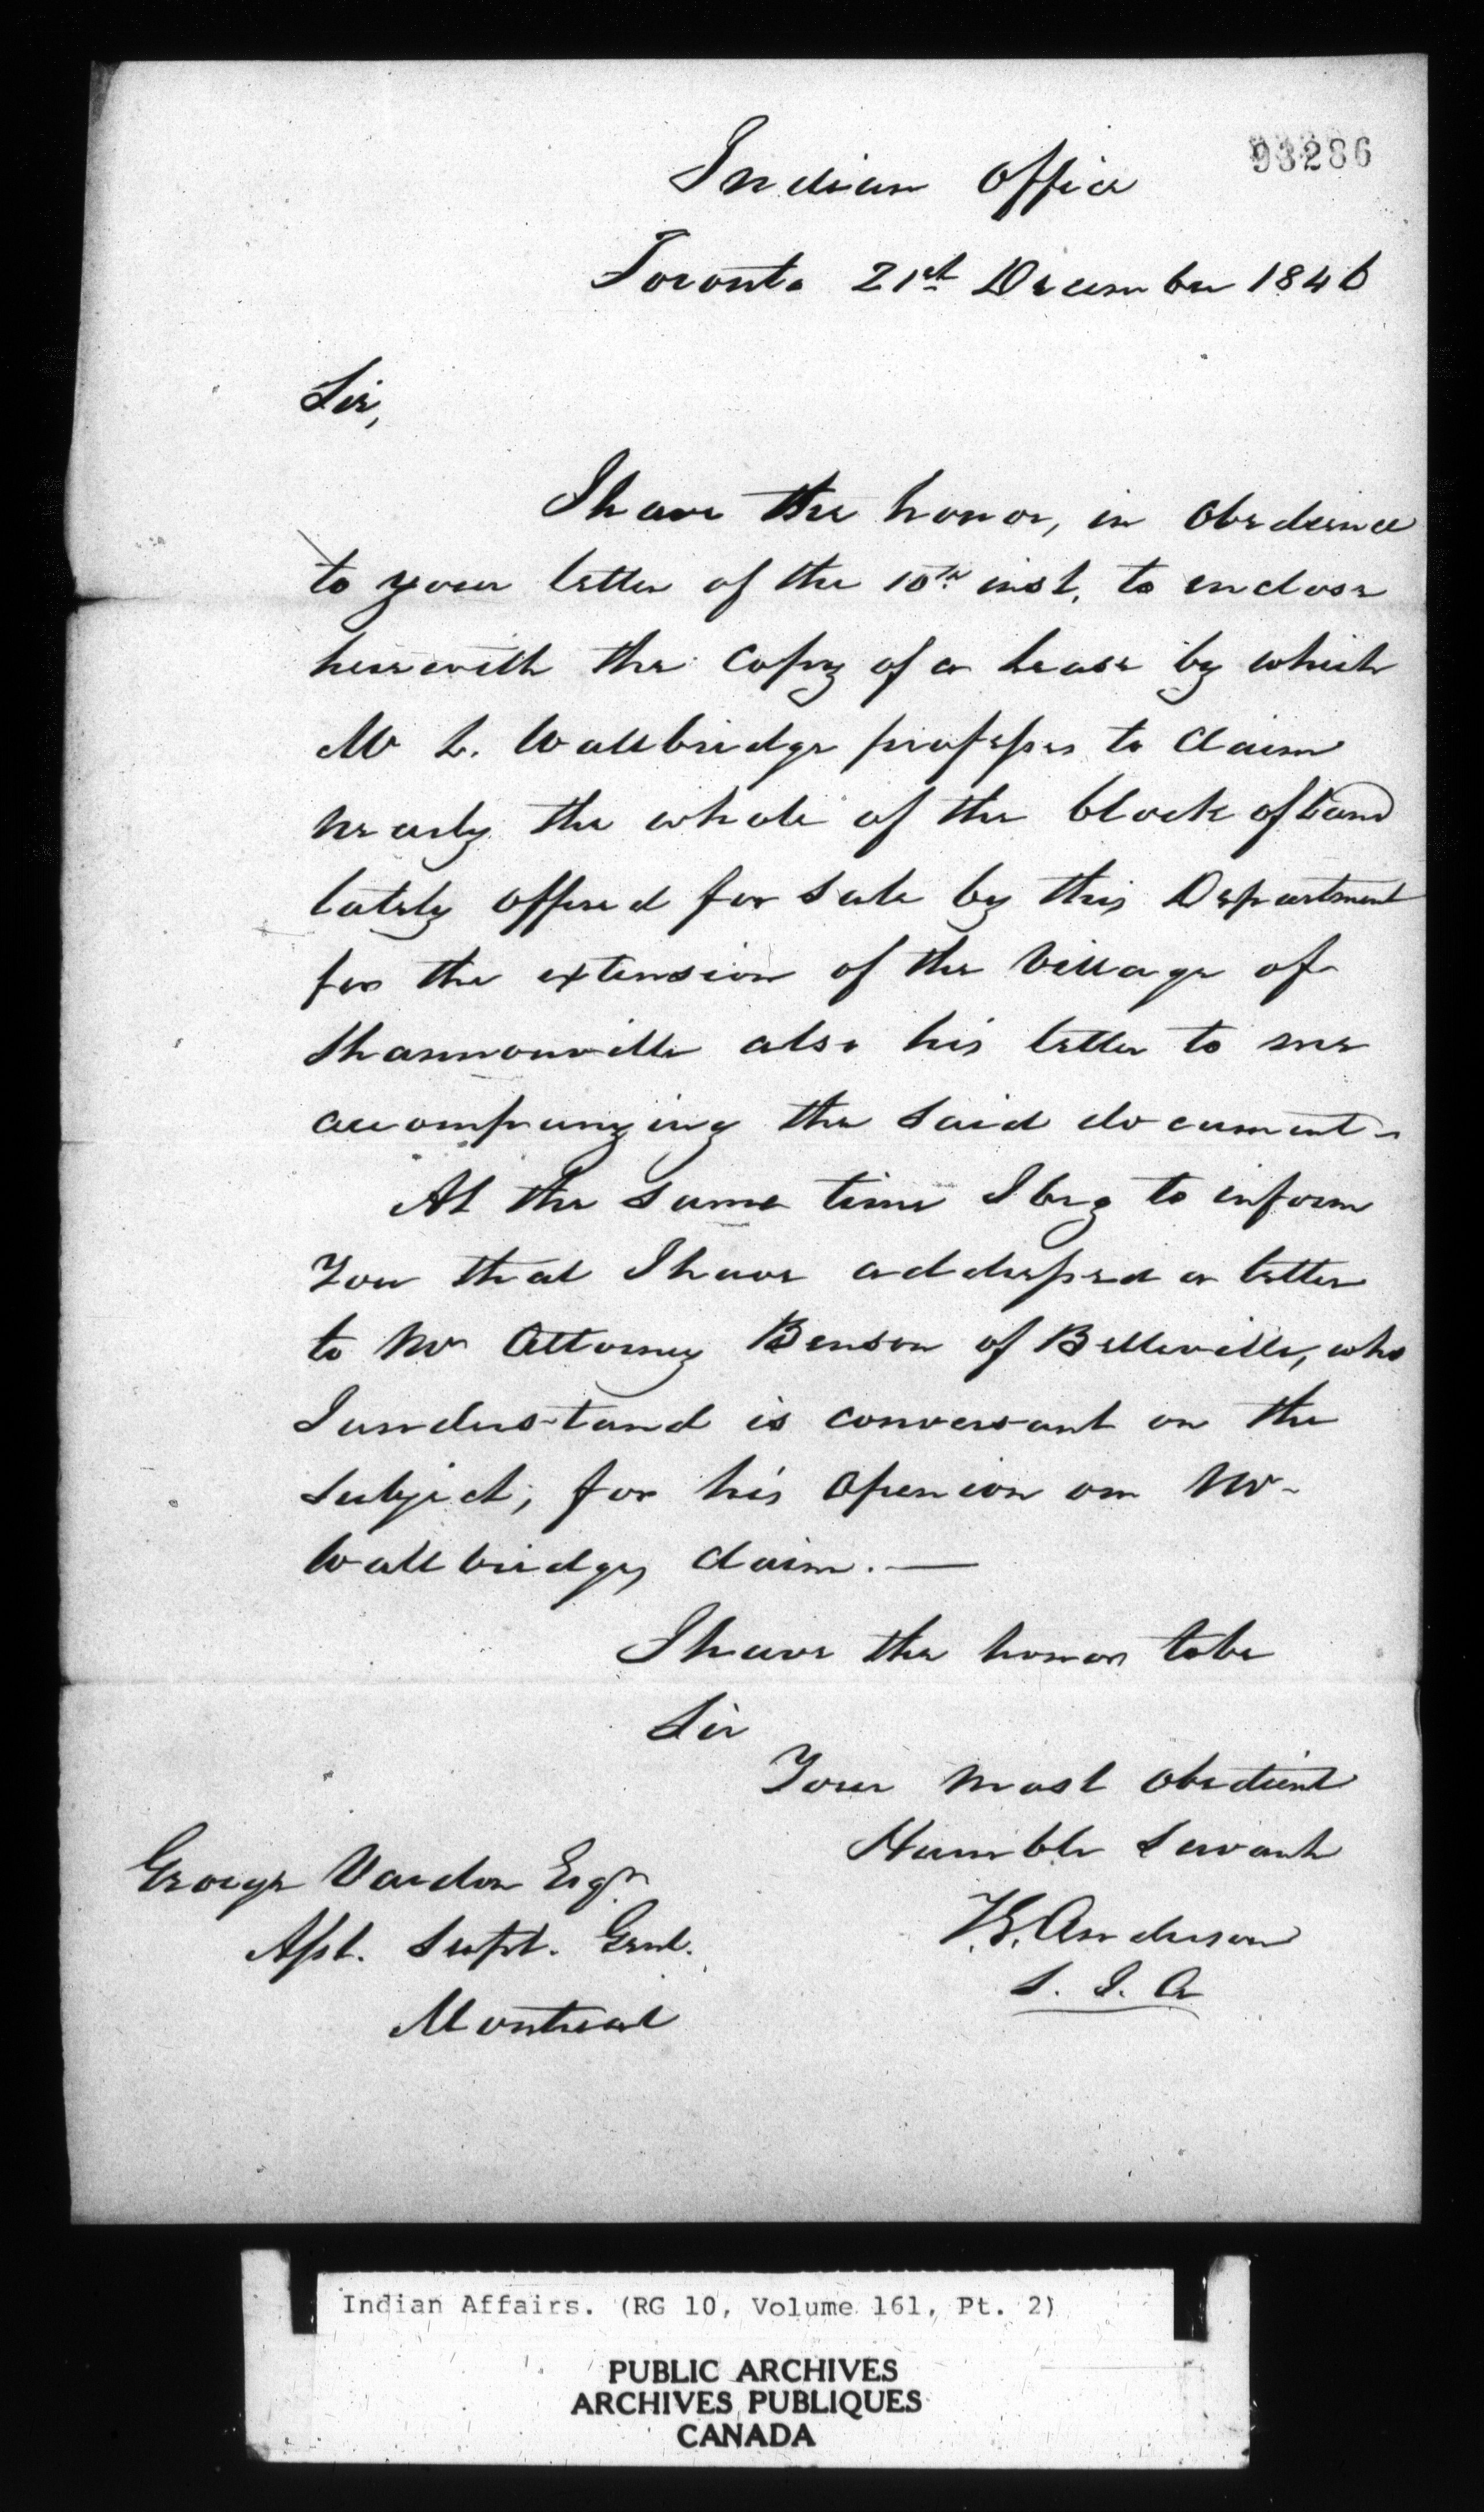 93286
Indian Office
Toronto 21st December 1846
Sir,
I have the honor, in obedience
to your letter of the 10th inst, to enclose
herewith the Copy of a Lease by which
Mr L. Wallbridge professes to Claim
nearly the whole of the block of Land
lately offered for Sale by this Department
for the extension of the Village of
Shannonville also his letter to me
accompanying the Said document -
At the same time I beg to inform
You that I have addressed a letter
to Mr Attorney Benson of Belleville, who
I understand is conversant on the
Subject, for his Openion on Mr
Wallbridges Claim. —
I have the honor to be
Sir
Your Most Obedient
Humble Servant
T.G. Anderson
S. I. A
George Vardon Esqr
Asst. Supt. Genl.
Montreal
Indian Affairs. (RG 10, Volume 161, Pt. 2)
PUBLIC ARCHIVES
ARCHIVES PUBLIQUES
CANADA